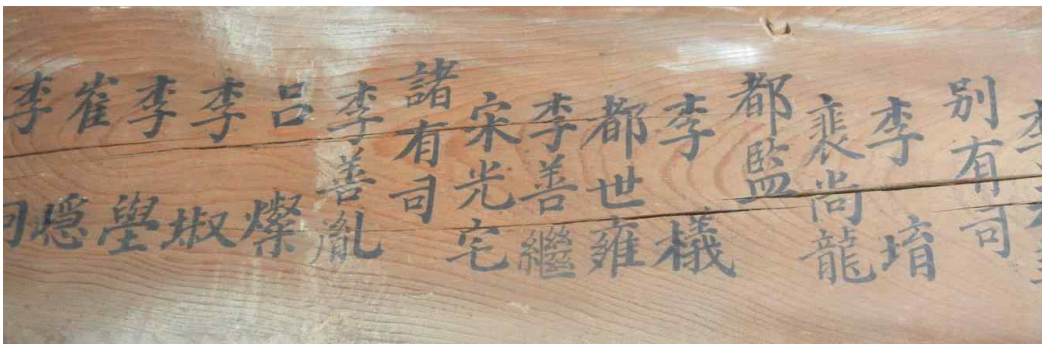 別有司
李堉
裵尚龍
都監
李檥
都世雍
李善繼
宋光宅
諸有司
李善胤
呂燦
李埱
李壆
崔㦩
李